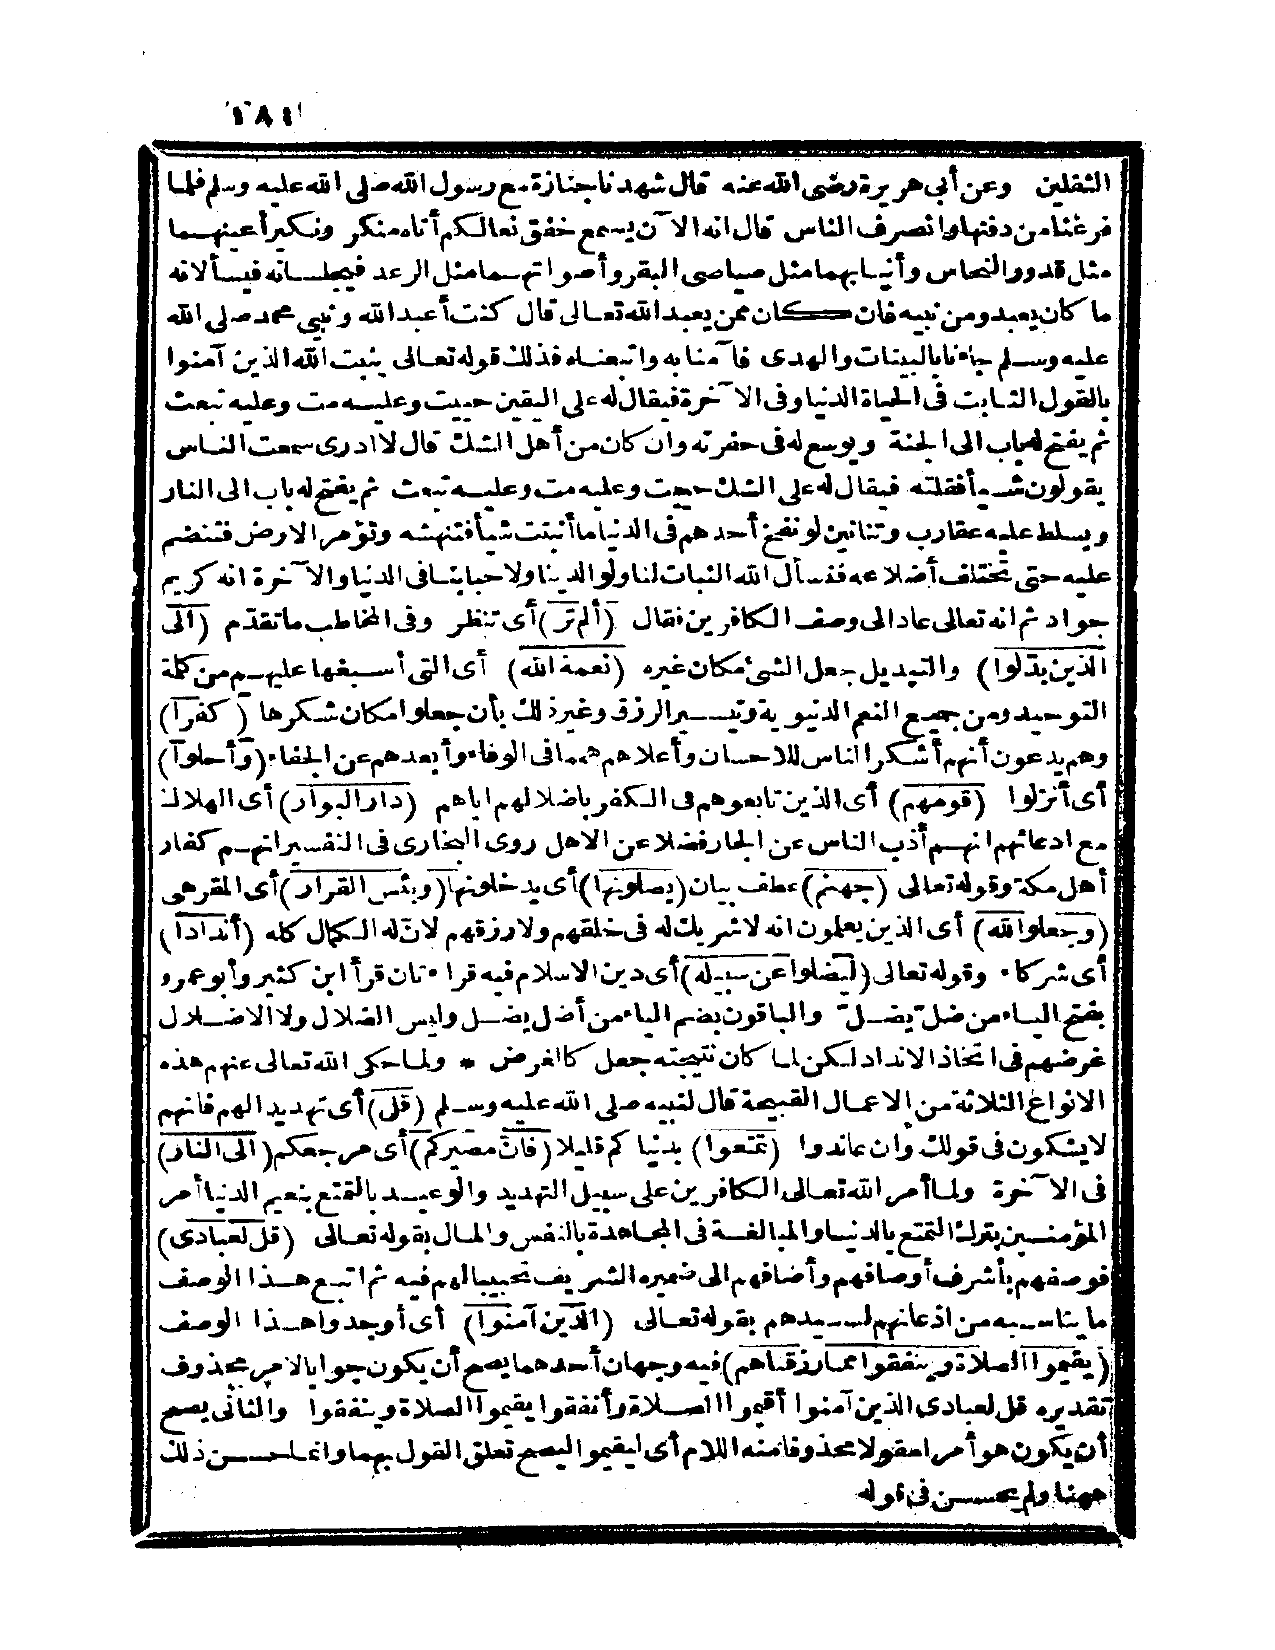 ١٨١
الثقلين وعن أبي هريرة رضى الله عنه قال شهدنا جنازة مع رسول الله صلى الله عليه وسلم فلما
فرغنا من دفنها وانصرف الناس قال انه الآن يسمع خفق نعالكم أتاه منكر ونكير أعينهما
مثل قدور النحاس وأنيابهما مثل صياصى البقر وأصواتهما مثل الرعد فيجلسانه فيسألانه
ما كان يعبد ومن نبيه فان كان ممن يعبد الله تعالى قال كنت أعبد الله ونبي محمد صلى الله
عليه وسلم جاءنا بالبينات والهدى فآمنا به واتبعناه فذلك قوله تعالى يثبت الله الذين آمنوا
بالقول الثابت فى الحياة الدنيا وفى الآخرة فيقال له على اليقين حييت وعليه مت وعليه تبعث
ثم يفتح له باب الى الجنة ويوسع له فى حفرته وان كان من أهل الشك قال لا ادرى سمعت الناس
يقولون شيأ فقلته فيقال له على الشك حييت وعليه مت وعليه تبعث ثم يفتح له باب الى النار
ويسلط عليه عقارب وتنانين لو نفخ أحدهم فى الدنيا ما أنبتت شيأ فتنهشه وتؤمر الارض فتنضم
عليه حتى تختلف أضلاعه فنسأل الله الثبات لنا ولوالدينا ولاحبابنا فى الدنيا والآخرة انه كريم
جواد ثم انه تعالى عاد الى وصف الكافرين فقال (ألم تر) أى تنظر وفى المخاطب ما تقدم (الى
الذين بدّلوا) والتبديل جعل الشئ مكان غيره (نعمة الله) أى التى أسبغها عليهم من كلمة
التوحيد ومن جميع النعم الدنيوية وتيسير الرزق وغير ذلك بأن جعلوا مكان شكرها (كفرا)
وهم يدعون أنهم أشكر الناس للاحسان وأعلاهم همما فى الوفاء وأبعدهم عن الجفاء (وأحلوا)
أى أنزلوا (قومهم) أى الذين تابعوهم فى الكفر باضلالهم اياهم (دار البوار) أى الهلاك
مع ادعائهم انهم أذب الناس عن الجار فضلا عن الاهل روى البخارى فى التفسير انهم كفار
أهل مكة وقوله تعالى (جهنم) عطف بيان (يصلونها) أى يدخلونها (وبئس القرار) أى المقر هى
(وجعلوا لله) أى الذين يعلمون انه لا شريك له فى خلقهم ولا رزقهم لانّ له الكمال كله (أندادا)
أى شركاء وقوله تعالى (ليضلوا عن سبيله) أى دين الاسلام فيه قراءتان قرأ ابن كثير وأبو عمرو
بفتح الياء من ضلّ يضلّ والباقون بضم الياء من أضل يضل وليس الضلال ولا الاضلال
غرضهم فى اتخاذ الانداد لكن لما كان نتيجته جعل كالغرض * ولما حكى الله تعالى عنهم هذه
الانواع الثلاثة من الاعمال القبيحة قال لنبيه صلى الله عليه وسلم (قل) أى تهديد الهم فانهم
لا يشكون فى قولك وان عاندوا (تمتعوا) بدنياكم قليلا (فانّ مصيركم) أى مرجعكم (الى النار)
فى الآخرة ولما أمر الله تعالى الكافرين على سبيل التهديد والوعيد بالتمتع بنعيم الدنيا أمر
المؤمنين بترك التمتع بالدنيا والمبالغة فى المجاهدة بالنفس والمال بقوله تعالى (قل لعبادى)
فوصفهم بأشرف أوصافهم وأضافهم الى ضميره الشريف تحبيبا لهم فيه ثم اتبع هذا الوصف
ما يناسبه من اذعانهم لسيدهم بقوله تعالى (الذين آمنوا) أى أوجدوا هذا الوصف
(يقيموا الصلاة وينفقوا مما رزقناهم) فيه وجهان أحدهما يصح أن يكون جوابا لامر محذوف
تقديره قل لعبادى الذين آمنوا أقيموا الصلاة وأنفقوا يقيموا الصلاة وينفقوا والثانى يصح
أن يكون هو أمرا مقولا محذوفا منه اللام أى ليقيموا ليصح تعلق القول بهما وانما حسن ذلك
ههنا ولم يحسن فى قوله